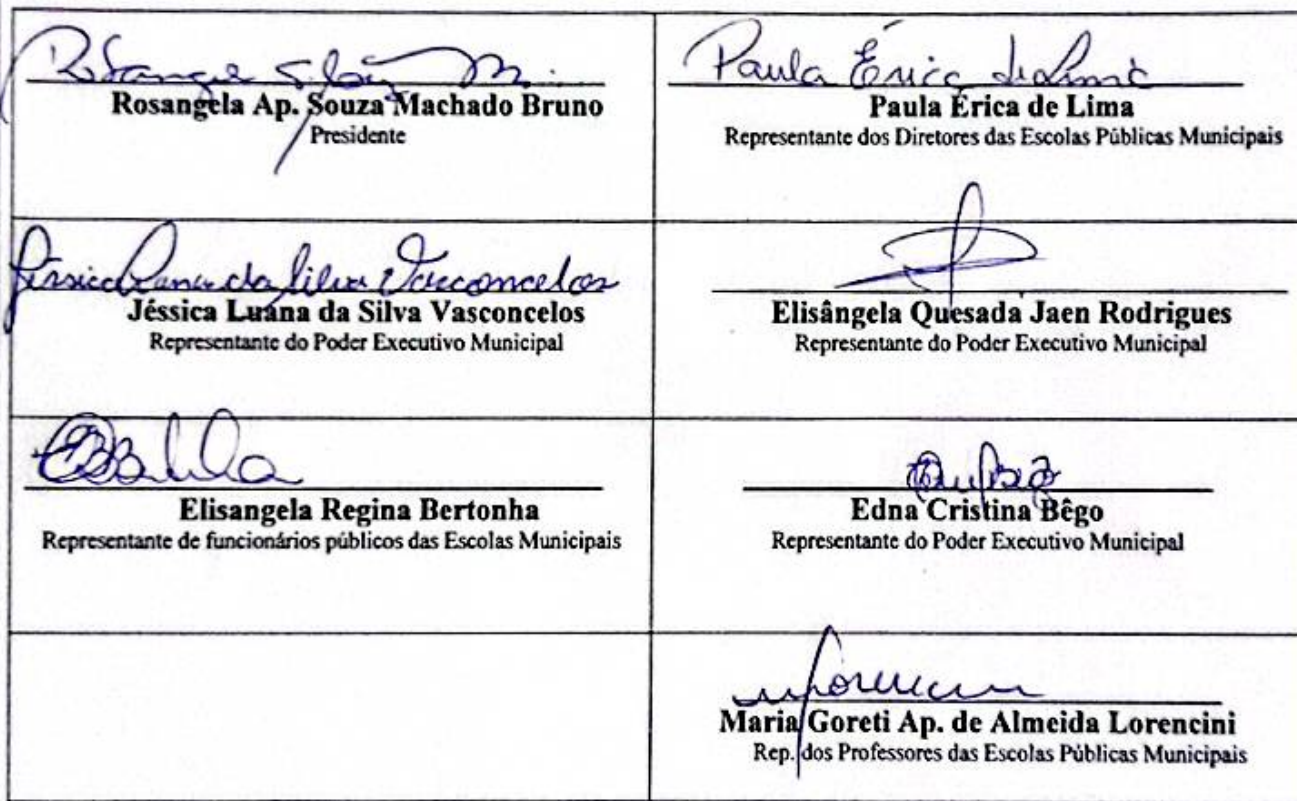 Rosangela Ap. Souza Machado Bruno
Presidente
Paula Érica de Lima
Paula Érica de Lima
Representante dos Diretores das Escolas Públicas Municipais
Jéssica Luana da Silva Vasconcelos
Jéssica Luana da Silva Vasconcelos
Representante do Poder Executivo Municipal
Elisângela Quesada Jaen Rodrigues
Representante do Poder Executivo Municipal
Elisangela Regina Bertonha
Representante de funcionários públicos das Escolas Municipais
Edna Cristina Bêgo
Representante do Poder Executivo Municipal
Maria Goreti Ap. de Almeida Lorencini
Rep. dos Professores das Escolas Públicas Municipais